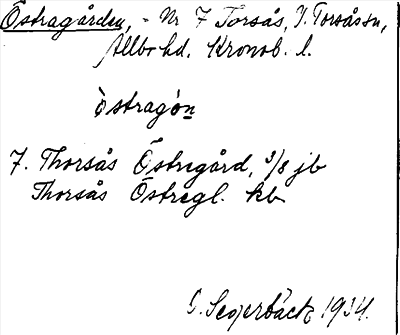 Östragården, - Nr 7 Torsås, V. Torsås sn,
Allbo hd. Kronob. l.
östragón
7. Thorsås Östregård, 3/8 jb
Thorsås Östregl. kb
Segerbäck 1934.